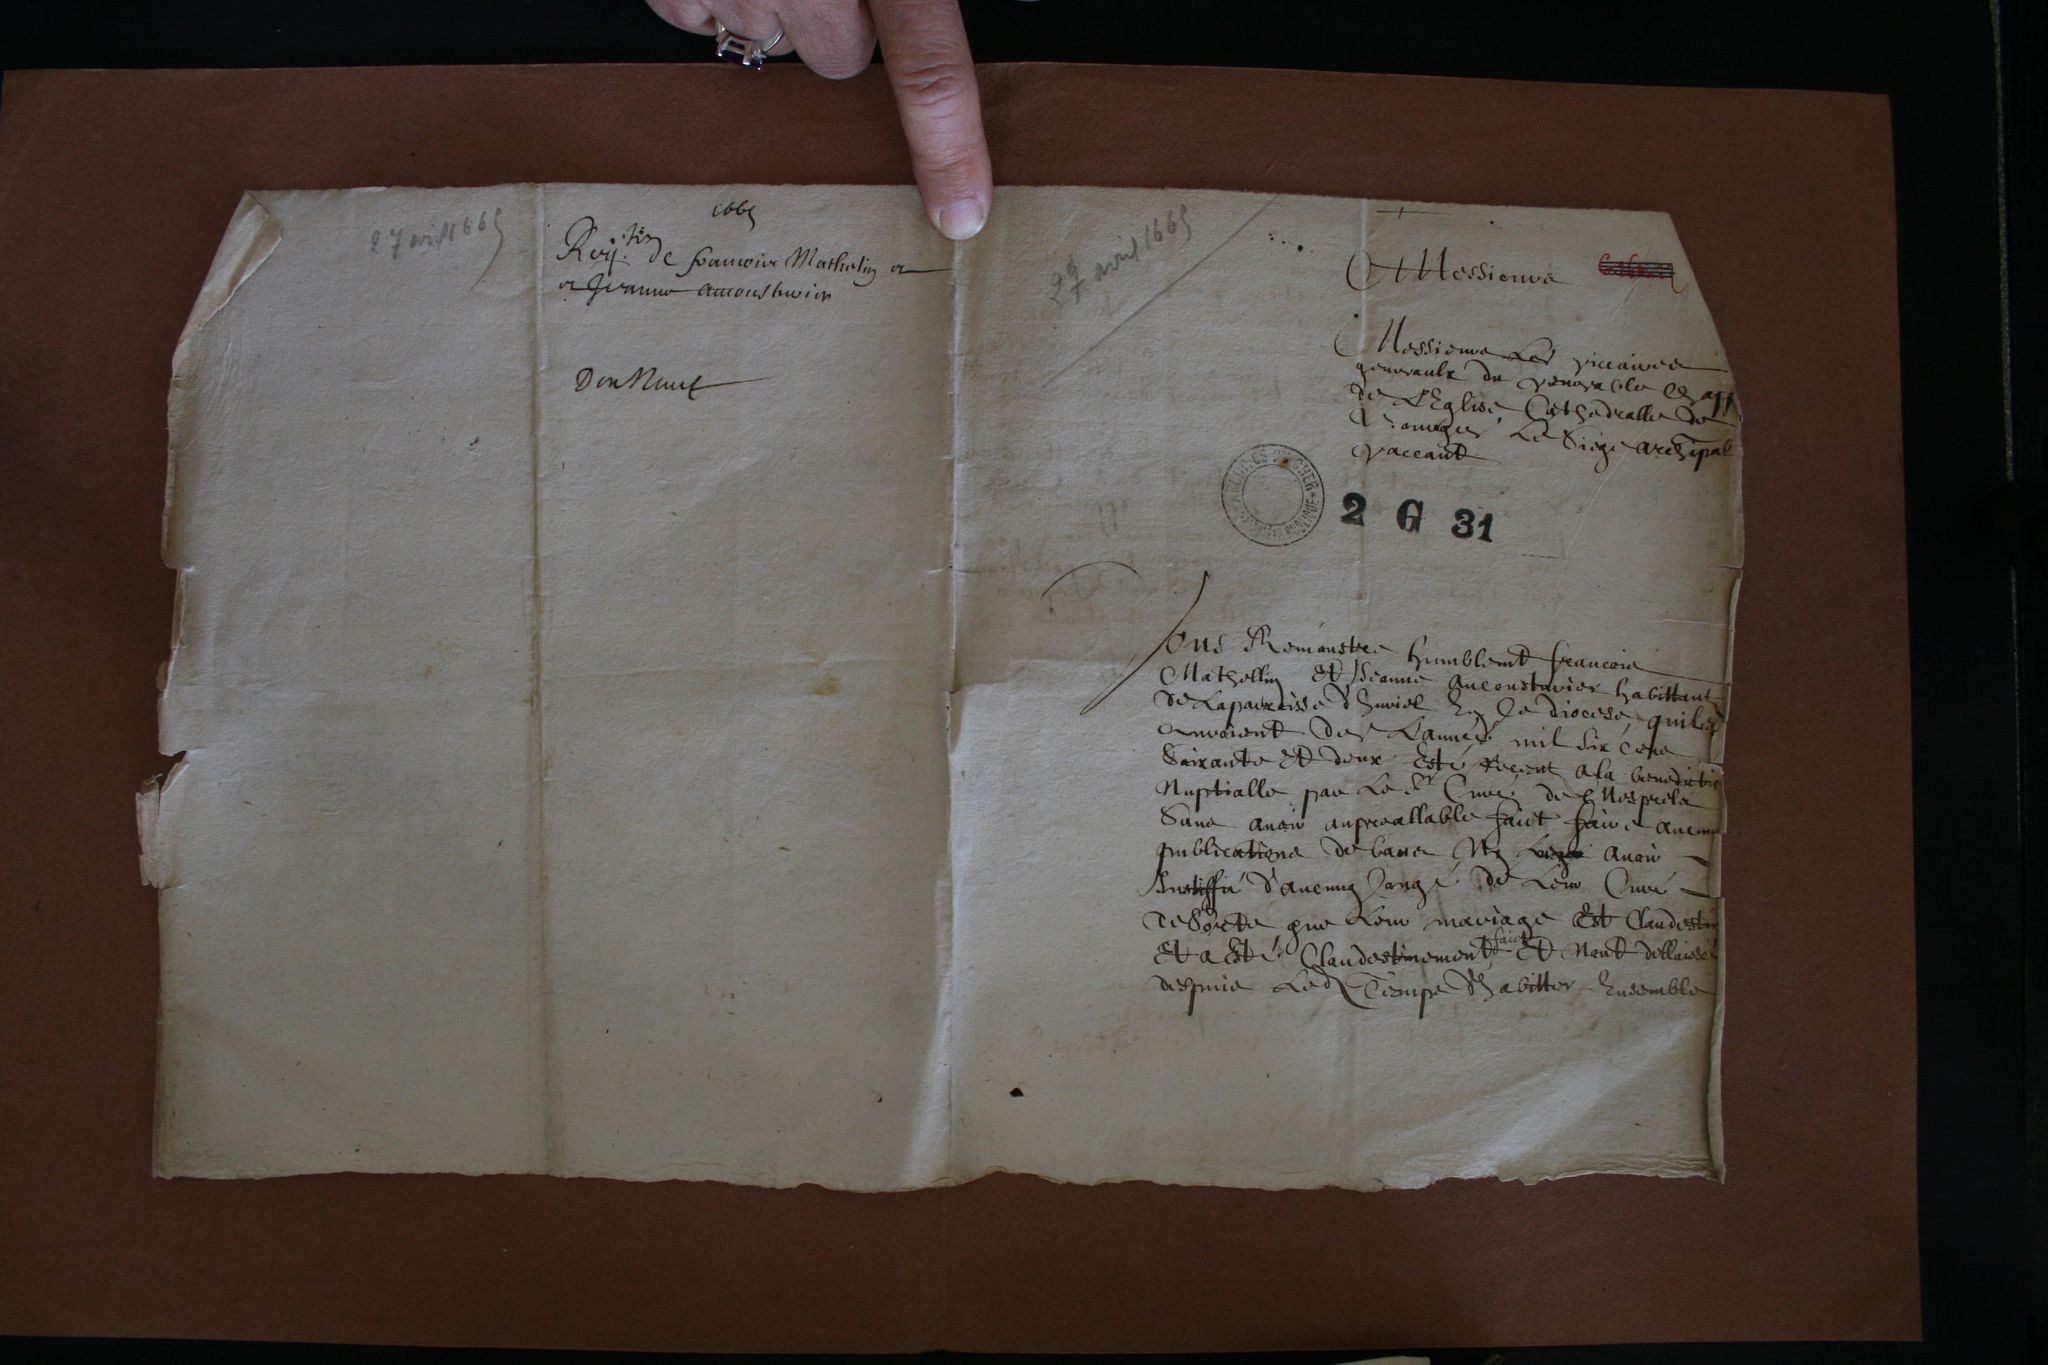 27 avril 1665
1665
Reqtion de francoise Mathelin et
et Jeanne aucousturier
Don Nauf
27 avril 1665
A Messieurs
Messieurs Les viccaires
generaulx du venerable Chapp
de L'Eglise Cathedralle de
Bourges Le Siege archipal
vaccant
ARCHIVES DU CHER
2 G 31
Vous Remonstre humblemt francois
Mathellin Et Jeanne aucousturier habittant
de La parroisse d'huriel En Ce diocese, quilz
auroient des Lannée mil six cens
Soixante Et deux Esté receuz a la benediction
Nuptialle par Le Sr Curé de Mesples
Sans avoir aupreallable faict faire aucune
publications de bans Ny avoir
Justiffié d'aucung Congé de Leur Curé
de Sorte que Leur mariage Est Clandestin
Et a Esté Clandestinement faict Et Nont dellaissé
despuis Led Temps d'habitter Ensemble